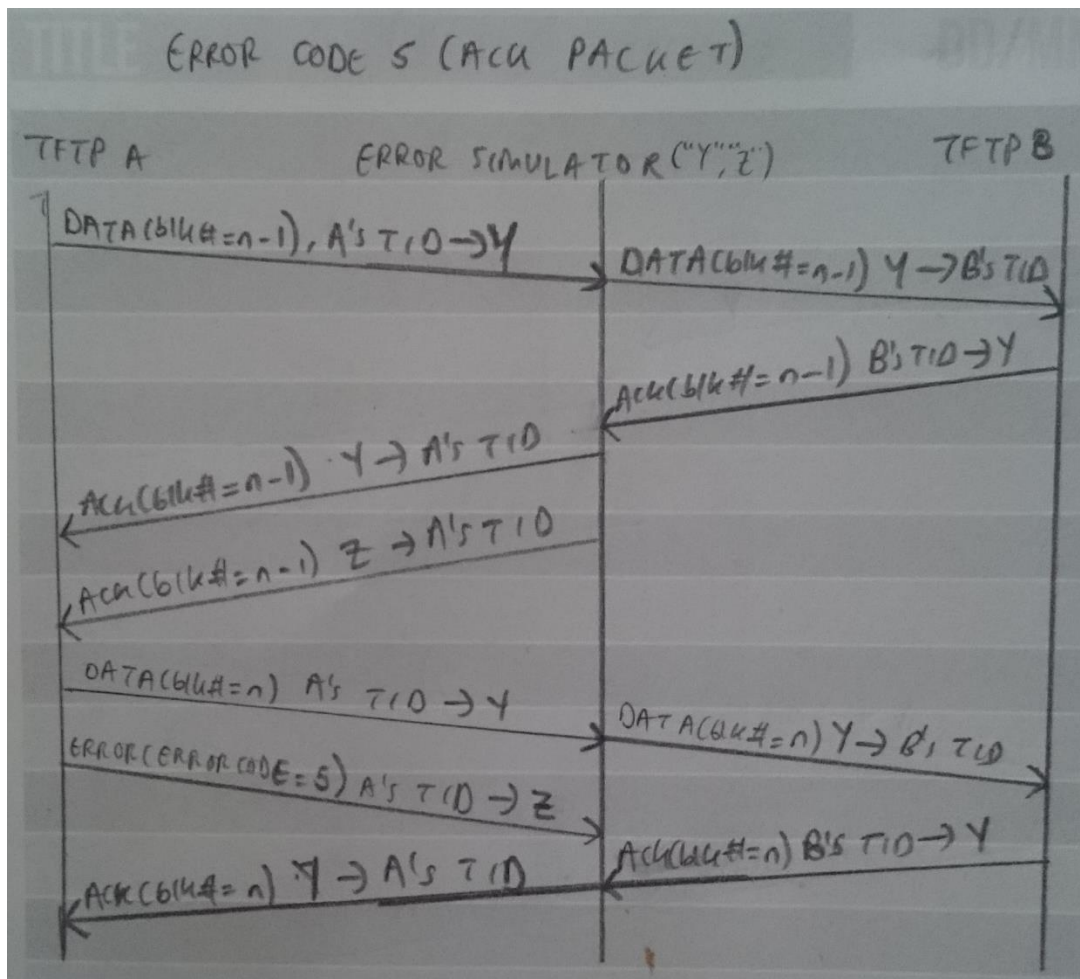 ERROR CODE 5 (ACK PACKET)
TFTP A
ERROR SIMULATOR ("Y","Z")
TFTP B
DATA(blk#=n-1), A's TID→Y
DATA(blk#=n-1) Y→B's TID
ACK(blk#=n-1) B's TID→Y
ACK(blk#=n-1) Y→A's TID
ACK(blk#=n-1) Z→A's TID
DATA(blk#=n) A's TID→Y
DATA(blk#=n) Y→B's TID
ERROR(ERROR CODE=5) A's TID→Z
ACK(blk#=n) B's TID→Y
ACK(blk#=n) Y→A's TID